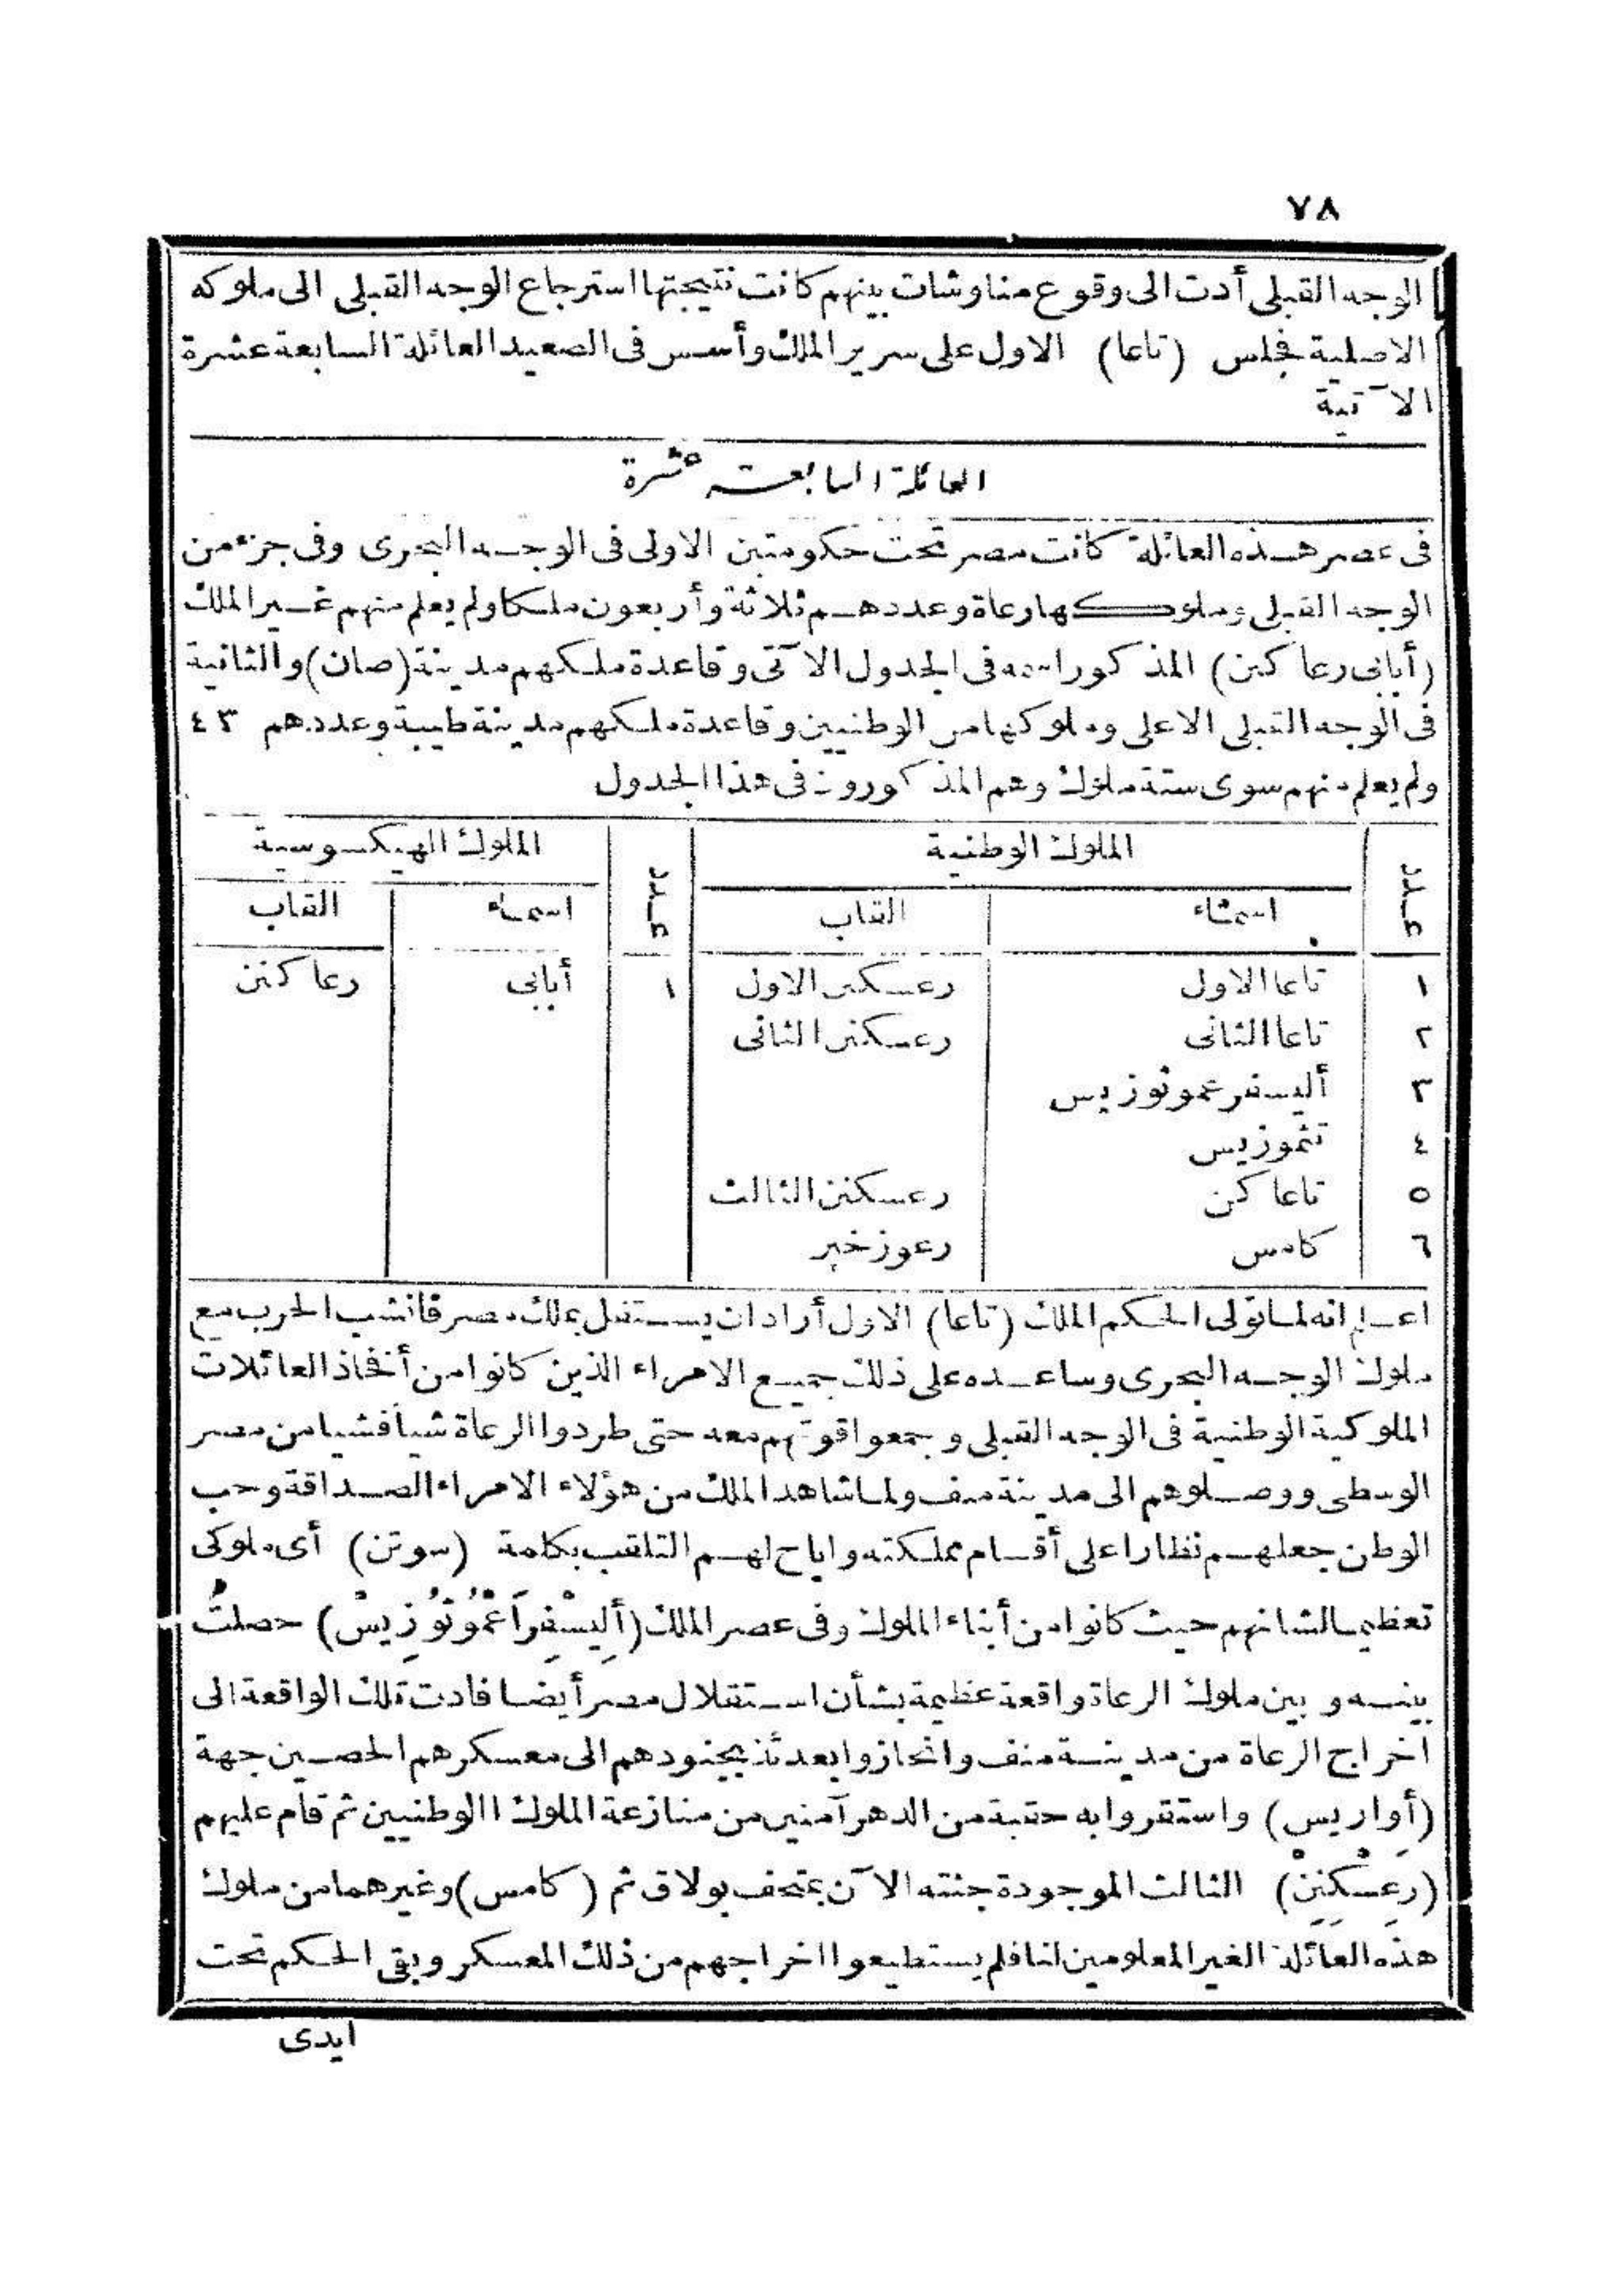 ٧٨
الوجه القبلى أدت الى وقوع مناوشات بينهم كانت نتيجتها استرجاع الوجه القبلى الى ملوكه
الاصلية فجلس (تاعا) الاول على سرير الملك وأسس فى الصعيد العائلة السابعة عشرة
الآتية
العائلة السابعة عشرة
فى عصر هذه العائلة كانت مصر تحت حكومتين الاولى فى الوجه البحرى وفى جزء من
الوجه القبلى وملوكها رعاة وعددهم ثلاثة وأربعون ملكا ولم يعلم منهم غير الملك
(أبابى رعا كنن) المذكور اسمه فى الجدول الآتى وقاعدة ملكهم مدينة (صان) والثانية
فى الوجه القبلى الاعلى وملوكها من الوطنيين وقاعدة ملكهم مدينة طيبة وعددهم ٤٣
ولم يعلم منهم سوى ستة ملوك وهم المذكورون فى هذا الجدول
عدد الملوك الوطنية عدد الملوك الهيكسوسية
اسماء القاب اسماء القاب
١ تاعا الاول رعسكنن الاول ١ أبابى رعا كنن
٢ تاعا الثانى رعسكنن الثانى
٣ أليسفرعموتوزيس
٤ تثموزيس
٥ تاعا كن رعسكنن الثالث
٦ كامس رعوزخبر
اعلم انه لما تولى الحكم الملك (تاعا) الاول أراد ان يستقل بملك مصر فانشب الحرب مع
ملوك الوجه البحرى وساعده على ذلك جميع الامراء الذين كانوا من أفخاذ العائلات
الملوكية الوطنية فى الوجه القبلى وجمعوا قوتهم معه حتى طردوا الرعاة شيأ فشيا من مصر
الوسطى ووصلوهم الى مدينة منف ولما شاهد الملك من هؤلاء الامراء الصداقة وحب
الوطن جعلهم نظارا على أقسام مملكته واباح لهم التلقب بكلمة (سوتن) أى ملوكى
تعظيما لشانهم حيث كانوا من أبناء الملوك وفى عصر الملك (أَلِيسْفِرَاعْمُوتُوزِيسْ) حصلت
بينه و بين ملوك الرعاة واقعة عظيمة بشأن استقلال مصر أيضا فادت تلك الواقعة الى
اخراج الرعاة من مدينة منف وانحازوا بعدئذ بجنودهم الى معسكرهم الحصين جهة
(أواريس) واستقروا به حقبة من الدهر آمنين من منازعة الملوك الوطنيين ثم قام عليهم
(رعسْكنِنْ) الثالث الموجودة جثته الآن بمتحف بولاق ثم (كامس) وغيرهما من ملوك
هذه العائلة الغير المعلومين لنا فلم يستطيعوا اخراجهم من ذلك المعسكر وبقى الحكم تحت
ايدى